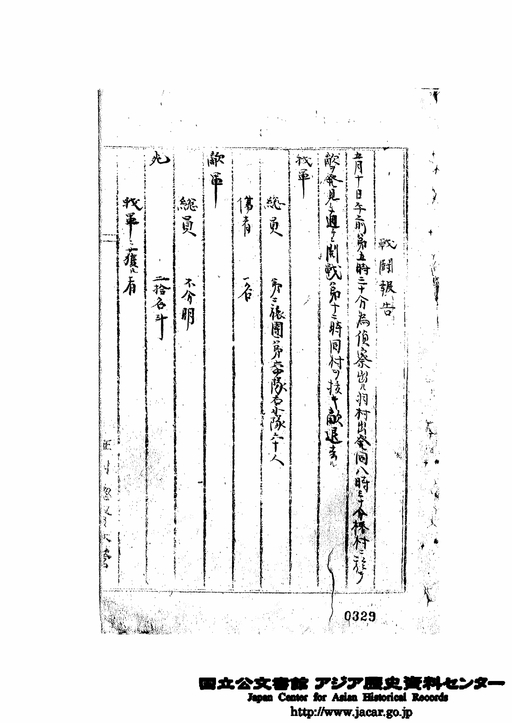 戦闘報告
五月十日午前第五時三十分為偵察出羽村出発同八時三十分柊村ニ於テ
敵ヲ発見シ遇ヒ開戦第十二時同村ヲ抜キ敵退去ス
我軍
総員 第二旅團第六中隊右小隊六十人
傷者 一名
敵軍
総員 不分明
死 二拾名斗
我軍ニ獲ル有
0329
国立公文書館 アジア歴史資料センター
Japan Center for Asian Historical Records
http://www.jacar.go.jp